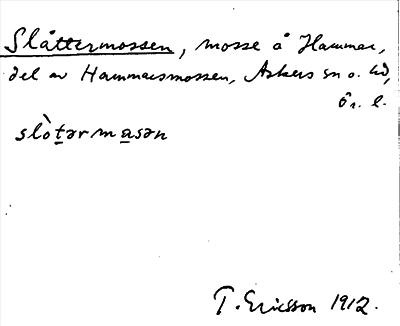 Slåttermossen, mosse å Hammar,
del av Hammarsmossen, Askers sn o. hd,
Ör. l.
slò̀tərmasən
T. Ericsson 1912.